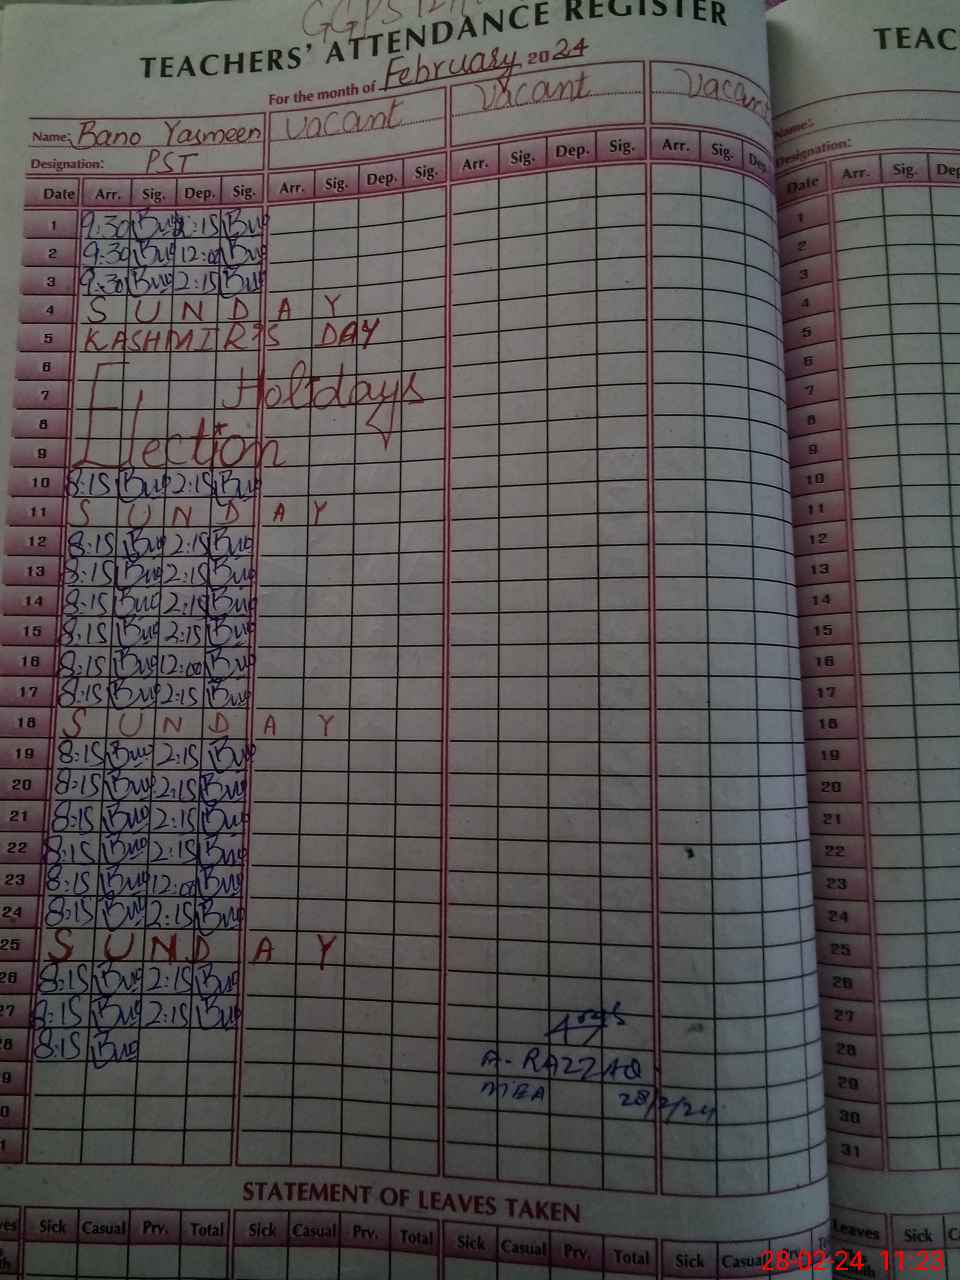 GGPS
TEACHERS' ATTENDANCE REGISTER
TEAC
For the month of February 2024
Name: Bano Yasmeen vacant vacant vacant
Name:
Designation: PST
Designation:
Date Arr. Sig. Dep. Sig. Arr. Sig. Dep. Sig. Arr. Sig. Dep. Sig. Arr. Sig. Dep.
Date Arr. Sig. Dep
1 9:30 2:15
2 9:30 12:00
3 9:30 2:15
4 S U N D A Y
5 KASHMIR'S DAY
6
7 Holidays
8
9 Election
10 8:15 2:15
11 S U N D A Y
12 8:15 2:15
13 8:15 2:15
14 8:15 2:15
15 8:15 2:15
16 8:15 12:00
17 8:15 2:15
18 S U N D A Y
19 8:15 2:15
20 8:15 2:15
21 8:15 2:15
22 8:15 2:15
23 8:15 12:00
24 8:15 2:15
25 S U N D A Y
26 8:15 2:15
27 8:15 2:15
28 8:15
9
0
1
A-RAZZAQ
MEA 28/2/24
1
2
3
4
5
6
7
8
9
10
11
12
13
14
15
16
17
18
19
20
21
22
23
24
25
26
27
28
29
30
31
STATEMENT OF LEAVES TAKEN
ves Sick Casual Prv. Total Sick Casual Prv. Total Sick Casual Prv. Total Sick Casual Prv.
Leaves Sick C
28-02-24 11:23